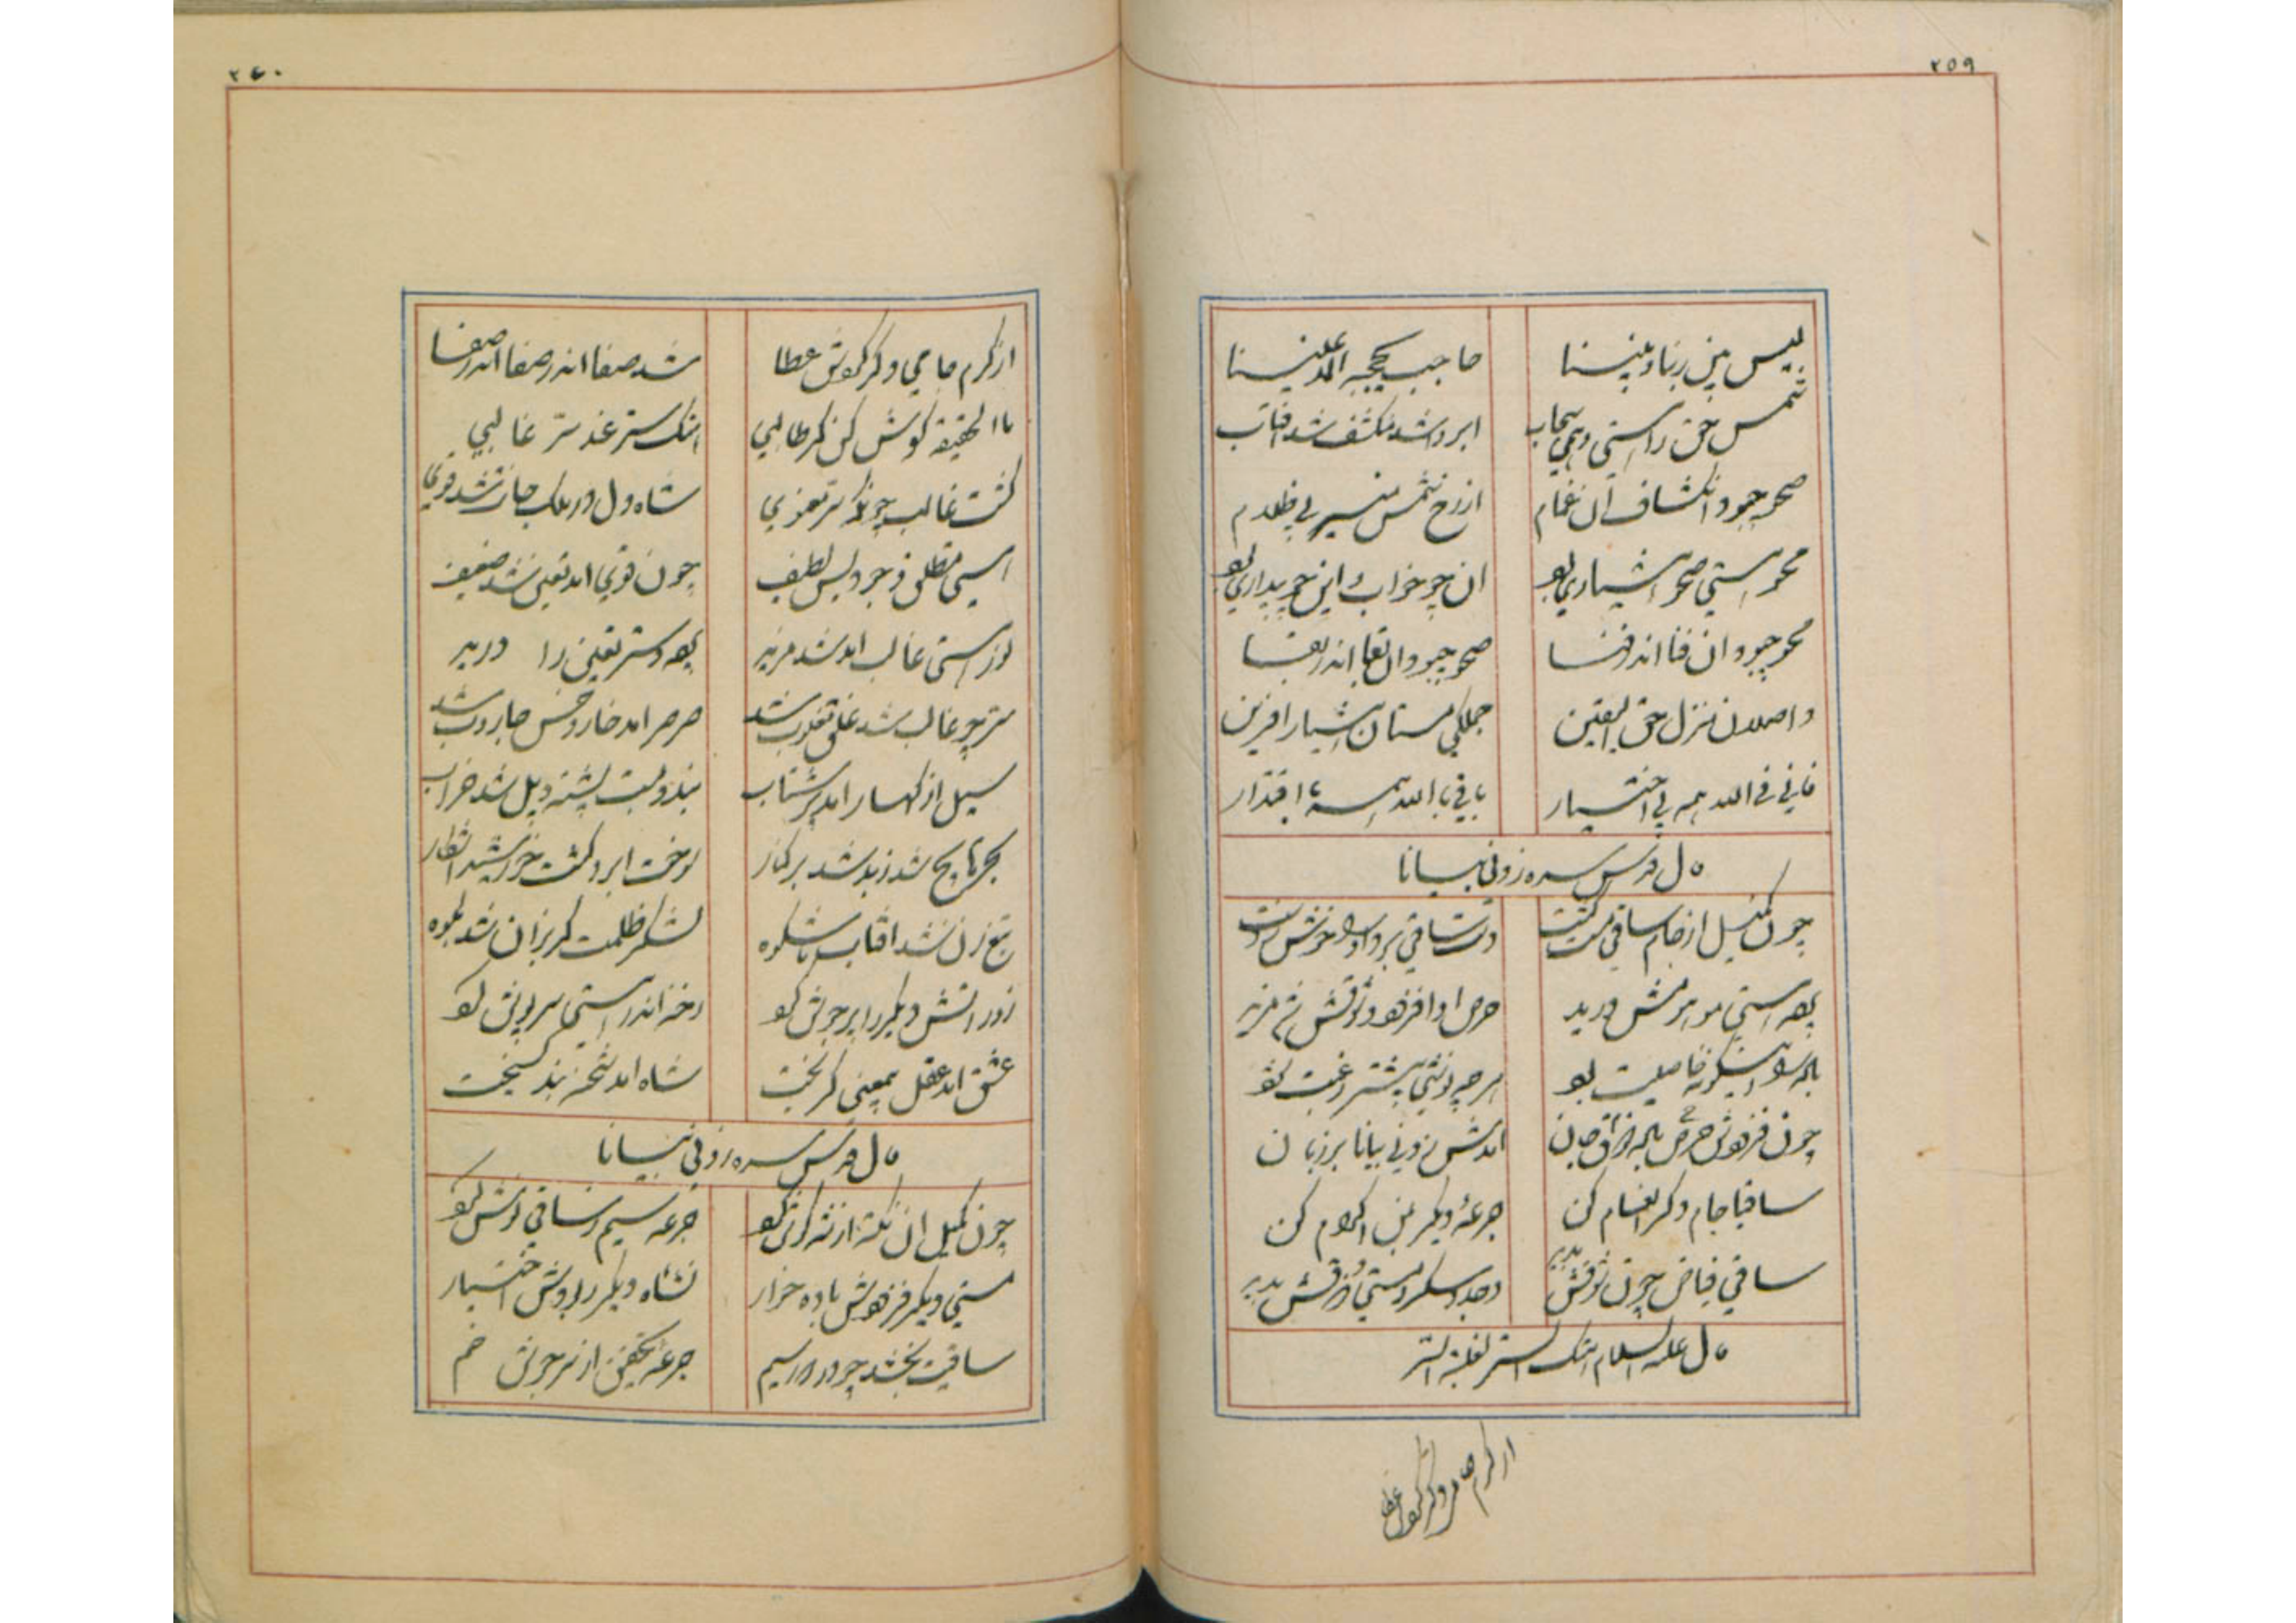 ٢٥٩
لیس بین ربنا و بیننا حاجب یحجبه الا عیننا
شمس حق را هستی وهمی سحاب ابر وا شد منکشف شد افتاب
صحو چبود انکشاف آن غمام از رخ شمس منیر بی ظلام
محو هستی صحو هشیاری بو ان چو خواب و این چو بیداری بو
محو چبود ان فنا اندر فنا صحو چبود ان بقا اندر بقا
واصلان منزل حق الیقین جملگی مستان هشیار افرین
فانی فی الله همه بی اختیار باقی بالله همه با اقتدار
قال قدس سره زدنی بیانا
چون کمیل از جام ساقی گشت مست دست ساقی برد او را خوش ز دست
پرده هستی موهومش درید حرص او افزود و ذوقش شد مزید
باده را اینگونه خاصیت بو هر چه نوشی بیشتر رغبت بو
چون فزودش حرص باده در مذاق جان امدش زدنی بیانا بر زبان
ساقیا جام دگر انعام کن جرعهٔ دیگر بمن اکرام کن
ساقی فیاض چون ذوقش بدید وجد و سکر و مستی و شوقش بدید
قال علیه السلام هتک الستر لغلبة السر
از کرم جامی دگر کردش عطا
٢٤٠
از کرم جامی دگر کردش عطا شد صفا اندر صفا اندر صفا
ما الحقیقه گوش کن گر طالبی هتک ستر عند سر غالبی
گشت غالب چونکه سر معنوی شاه دل در ملک جان شد قوی
هستی مطلق وجود بس لطیف چون قوی امد تعین شد ضعیف
نور هستی غالب امد شد مزید پرده ستر تعین را درید
سر چو غالب شد غلق مغلوب شد صرصر امد خار و خس جاروب شد
سیل از کهسار امد پر شتاب بند و بست پشته و پل شد خراب
بحر مواج شد زبد شد بر کنار سوخت ابر و گشت خورشید اشکار
تیغ زن شد افتاب با شکوه لشکر ظلمت گریزان شد بکوه
زور اتش دیگ را پر جوش کو رخنه اندر هستی سرپوش کو
عشق امد عقل بمعنی گریخت شاه امد شحنه بند گسیخت
قال قدس سره زدنی بیانا
چون کمیل ان نکته از شه گوش کو جرعه سیم ز ساقی نوش کو
مستی دیگر فزودش باده خوار نشاه دیگر ربودش اختیار
ساقیت بخشد چو در دور سیم جرعه تحقیق از سرجوش خم